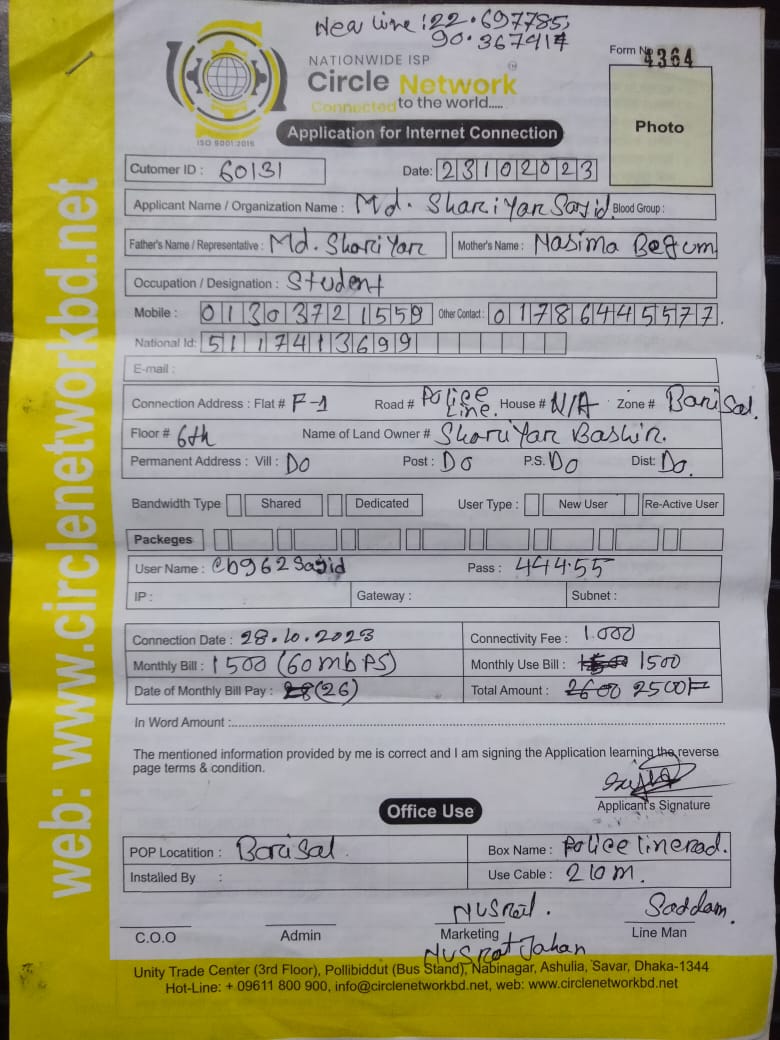 New line : 22.697785,
90.367414
NATIONWIDE ISP
Circle Network
Connected to the world.....
ISO 9001:2015
Form No 4364
Photo
Application for Internet Connection
Cutomer ID : 60131 Date: 23102023
Applicant Name / Organization Name : Md. Shariyar Sayid. Blood Group :
Father's Name / Representative : Md. Shariyar Mother's Name : Nasima Begum
Occupation / Designation : Student
Mobile : 01303721559 Other Contact : 01786445577.
National Id: 5117413699
E-mail :
Connection Address : Flat # F-1 Road # Police Line. House # N/A Zone # Barisal.
Floor # 6th Name of Land Owner # Shariyar Bashir.
Permanent Address : Vill : Do Post : Do P.S. Do Dist: Do.
Bandwidth Type Shared Dedicated User Type : New User Re-Active User
Packeges
User Name : cb962sayid Pass : 444.55
IP : Gateway : Subnet :
Connection Date : 28.10.2023 Connectivity Fee : 1000
Monthly Bill : 1500 (60 mbps) Monthly Use Bill : 1500
Date of Monthly Bill Pay : 28 (26) Total Amount : 2600 2500
In Word Amount :
The mentioned information provided by me is correct and I am signing the Application learning the reverse
page terms & condition.
Applicant's Signature
Office Use
POP Locatition : Barisal. Box Name : Police line rod.
Installed By : Use Cable : 210m.
Nusrat. Saddam.
C.O.O Admin Marketing Line Man
Nusrat Jahan
Unity Trade Center (3rd Floor), Pollibiddut (Bus Stand), Nabinagar, Ashulia, Savar, Dhaka-1344
Hot-Line: + 09611 800 900, info@circlenetworkbd.net, web: www.circlenetworkbd.net
web: www.circlenetworkbd.net